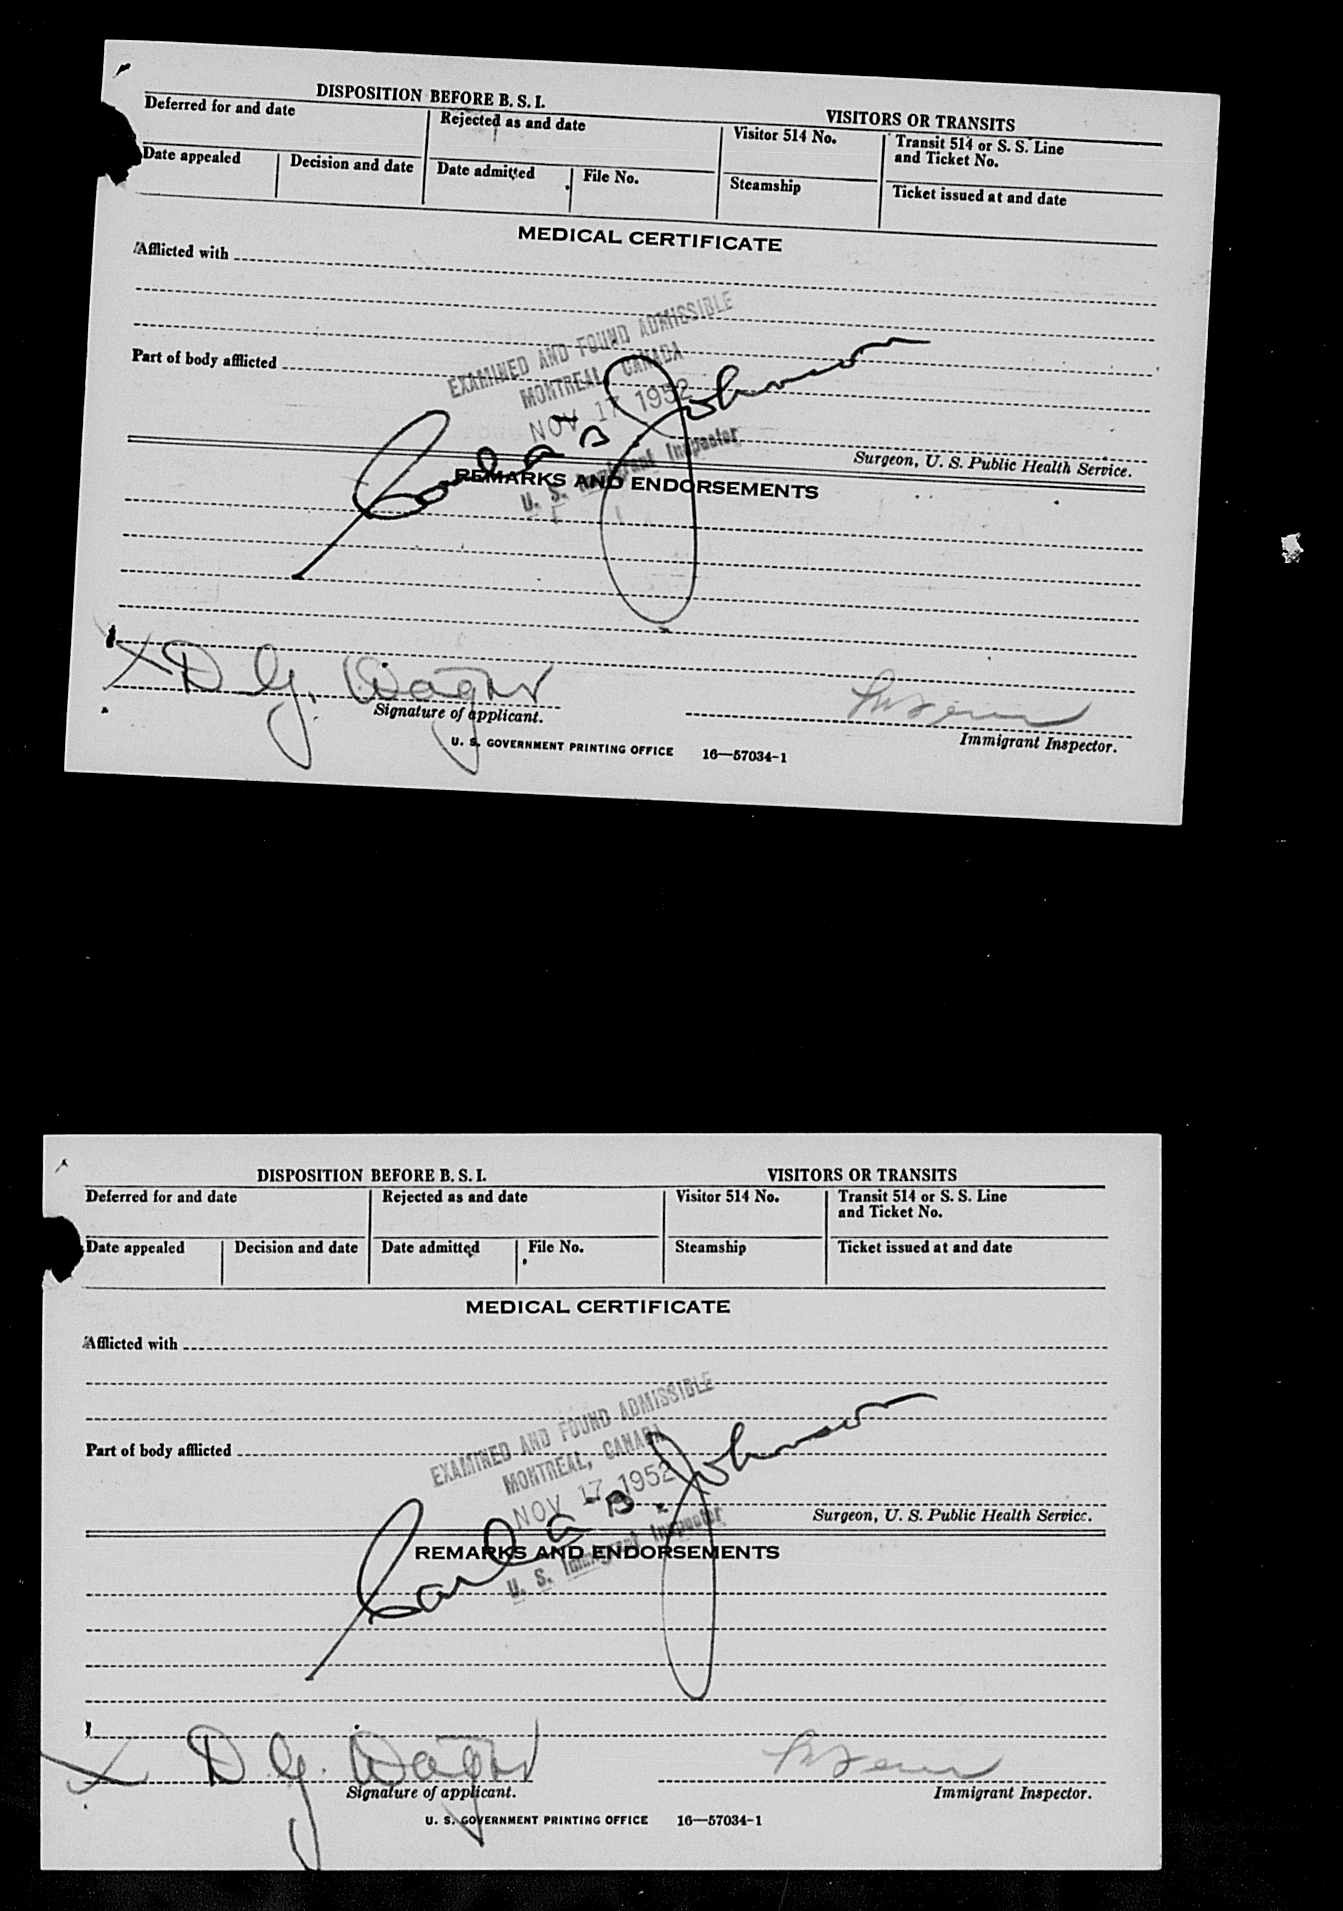 DISPOSITION BEFORE B. S. I.
VISITORS OR TRANSITS
Deferred for and date
Rejected as and date
Visitor 514 No.
Transit 514 or S. S. Line
and Ticket No.
Date appealed
Decision and date
Date admitted
File No.
Steamship
Ticket issued at and date
MEDICAL CERTIFICATE
Afflicted with
EXAMINED AND FOUND ADMISSIBLE
MONTREAL, CANADA
Part of body afflicted
NOV 17 1952
Carl a B Johnson
U. S. Immigrant Inspector
Surgeon, U. S. Public Health Service.
REMARKS AND ENDORSEMENTS
X D G. Wagner
Signature of applicant.
Immigrant Inspector.
U. S. GOVERNMENT PRINTING OFFICE 16—57034-1
DISPOSITION BEFORE B. S. I.
VISITORS OR TRANSITS
Deferred for and date
Rejected as and date
Visitor 514 No.
Transit 514 or S. S. Line
and Ticket No.
Date appealed
Decision and date
Date admitted
File No.
Steamship
Ticket issued at and date
MEDICAL CERTIFICATE
Afflicted with
EXAMINED AND FOUND ADMISSIBLE
MONTREAL, CANADA
Part of body afflicted
NOV 17 1952
Carl a B. Johnson
U. S. Immigrant Inspector
Surgeon, U. S. Public Health Service.
REMARKS AND ENDORSEMENTS
X D G. Wagner
Signature of applicant.
Immigrant Inspector.
U. S. GOVERNMENT PRINTING OFFICE 16—57034-1